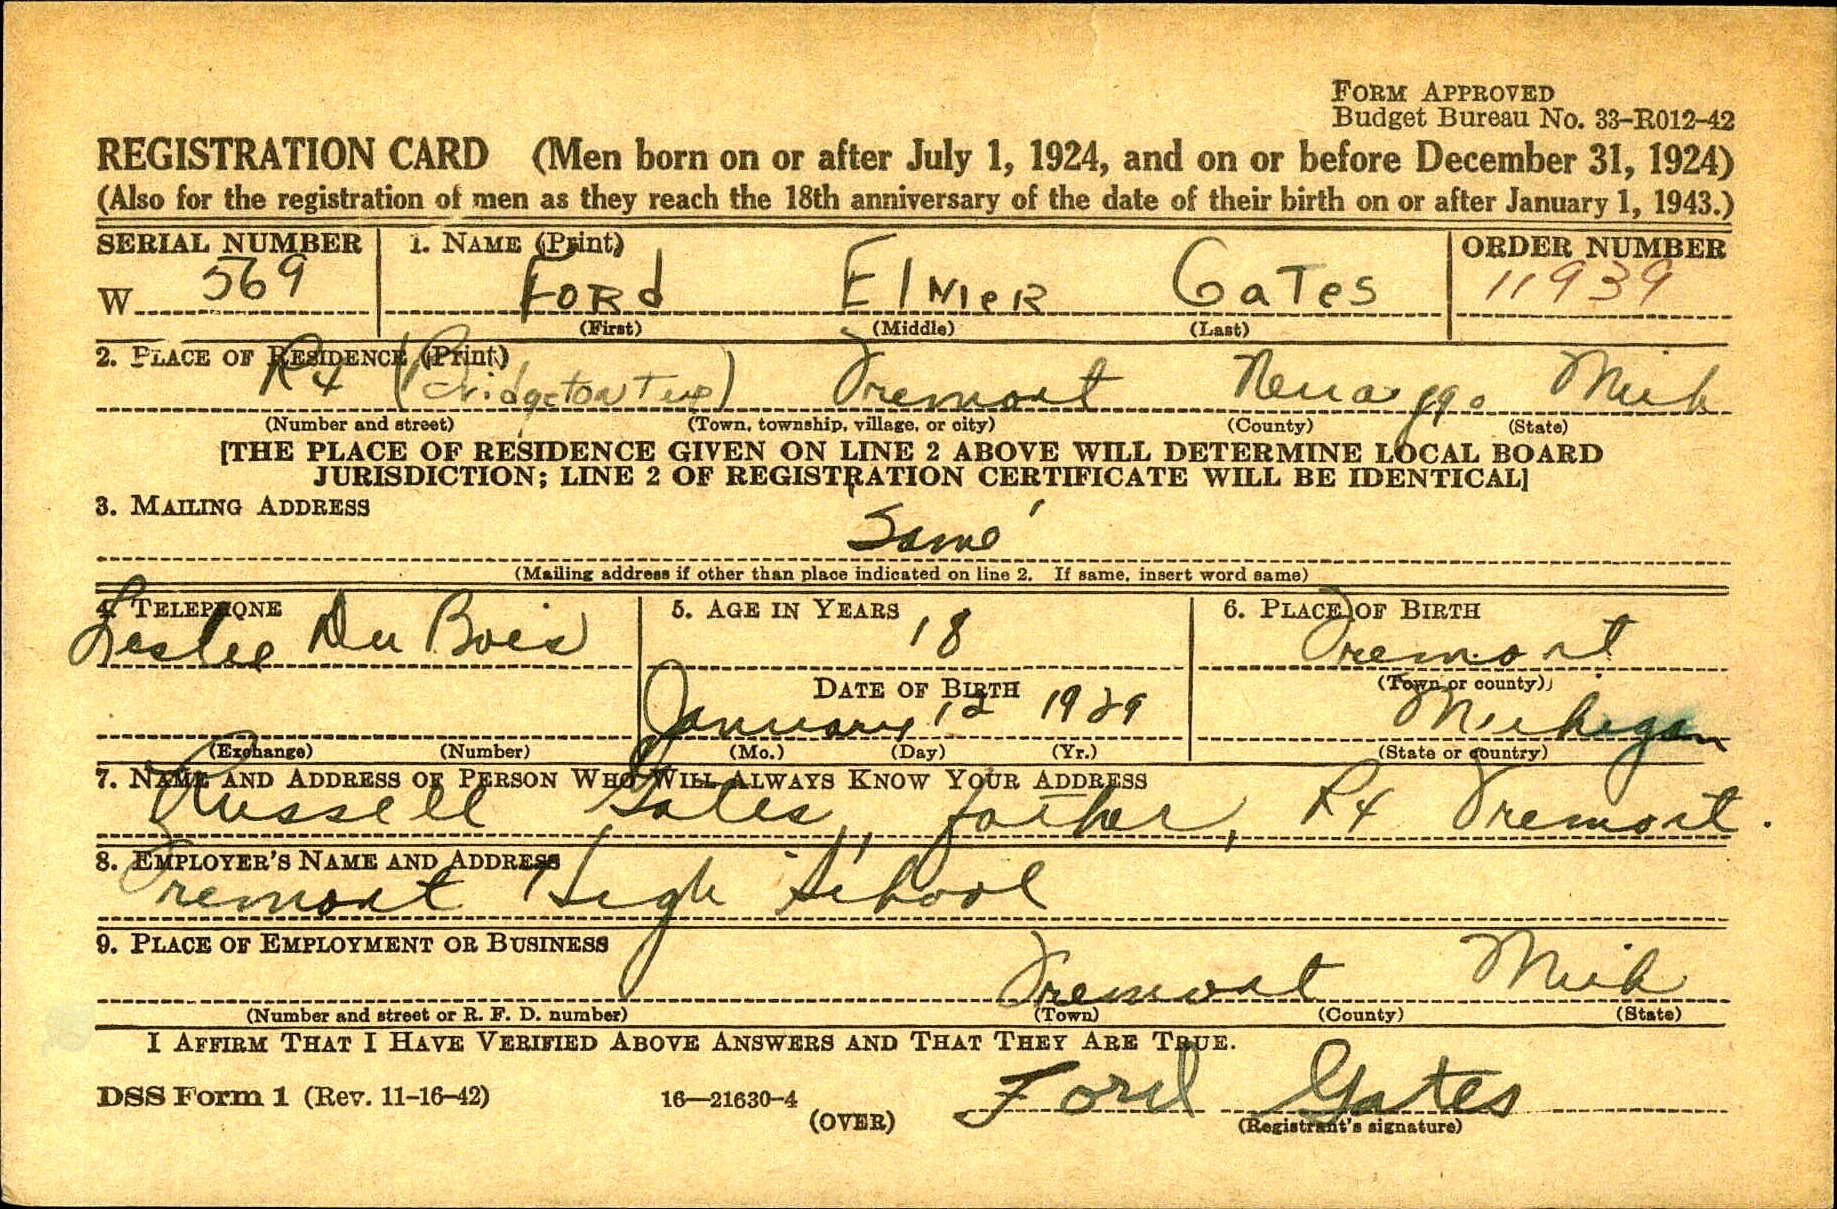 FORM APPROVED
Budget Bureau No. 33-R012-42
REGISTRATION CARD (Men born on or after July 1, 1924, and on or before December 31, 1924)
(Also for the registration of men as they reach the 18th anniversary of the date of their birth on or after January 1, 1943.)
SERIAL NUMBER 1. NAME (Print) ORDER NUMBER
W 569 FORd ElMeR GaTes 11939
(First) (Middle) (Last)
2. PLACE OF RESIDENCE (Print)
R4 (Bridgeton Twp) Fremont Newaygo Mich
(Number and street) (Town, township, village, or city) (County) (State)
[THE PLACE OF RESIDENCE GIVEN ON LINE 2 ABOVE WILL DETERMINE LOCAL BOARD
JURISDICTION; LINE 2 OF REGISTRATION CERTIFICATE WILL BE IDENTICAL]
3. MAILING ADDRESS
Same
(Mailing address if other than place indicated on line 2. If same, insert word same)
4. TELEPHONE 5. AGE IN YEARS 6. PLACE OF BIRTH
Leslie Du Bois 18 Fremont
DATE OF BIRTH (Town or county)
January 12 1929 Michigan
(Exchange) (Number) (Mo.) (Day) (Yr.) (State or country)
7. NAME AND ADDRESS OF PERSON WHO WILL ALWAYS KNOW YOUR ADDRESS
Russell Gates, father, R4 Fremont.
8. EMPLOYER'S NAME AND ADDRESS
Fremont High School
9. PLACE OF EMPLOYMENT OR BUSINESS
Fremont Mich
(Number and street or R. F. D. number) (Town) (County) (State)
I AFFIRM THAT I HAVE VERIFIED ABOVE ANSWERS AND THAT THEY ARE TRUE.
DSS Form 1 (Rev. 11-16-42) 16—21630-4 Ford Gates
(OVER) (Registrant's signature)